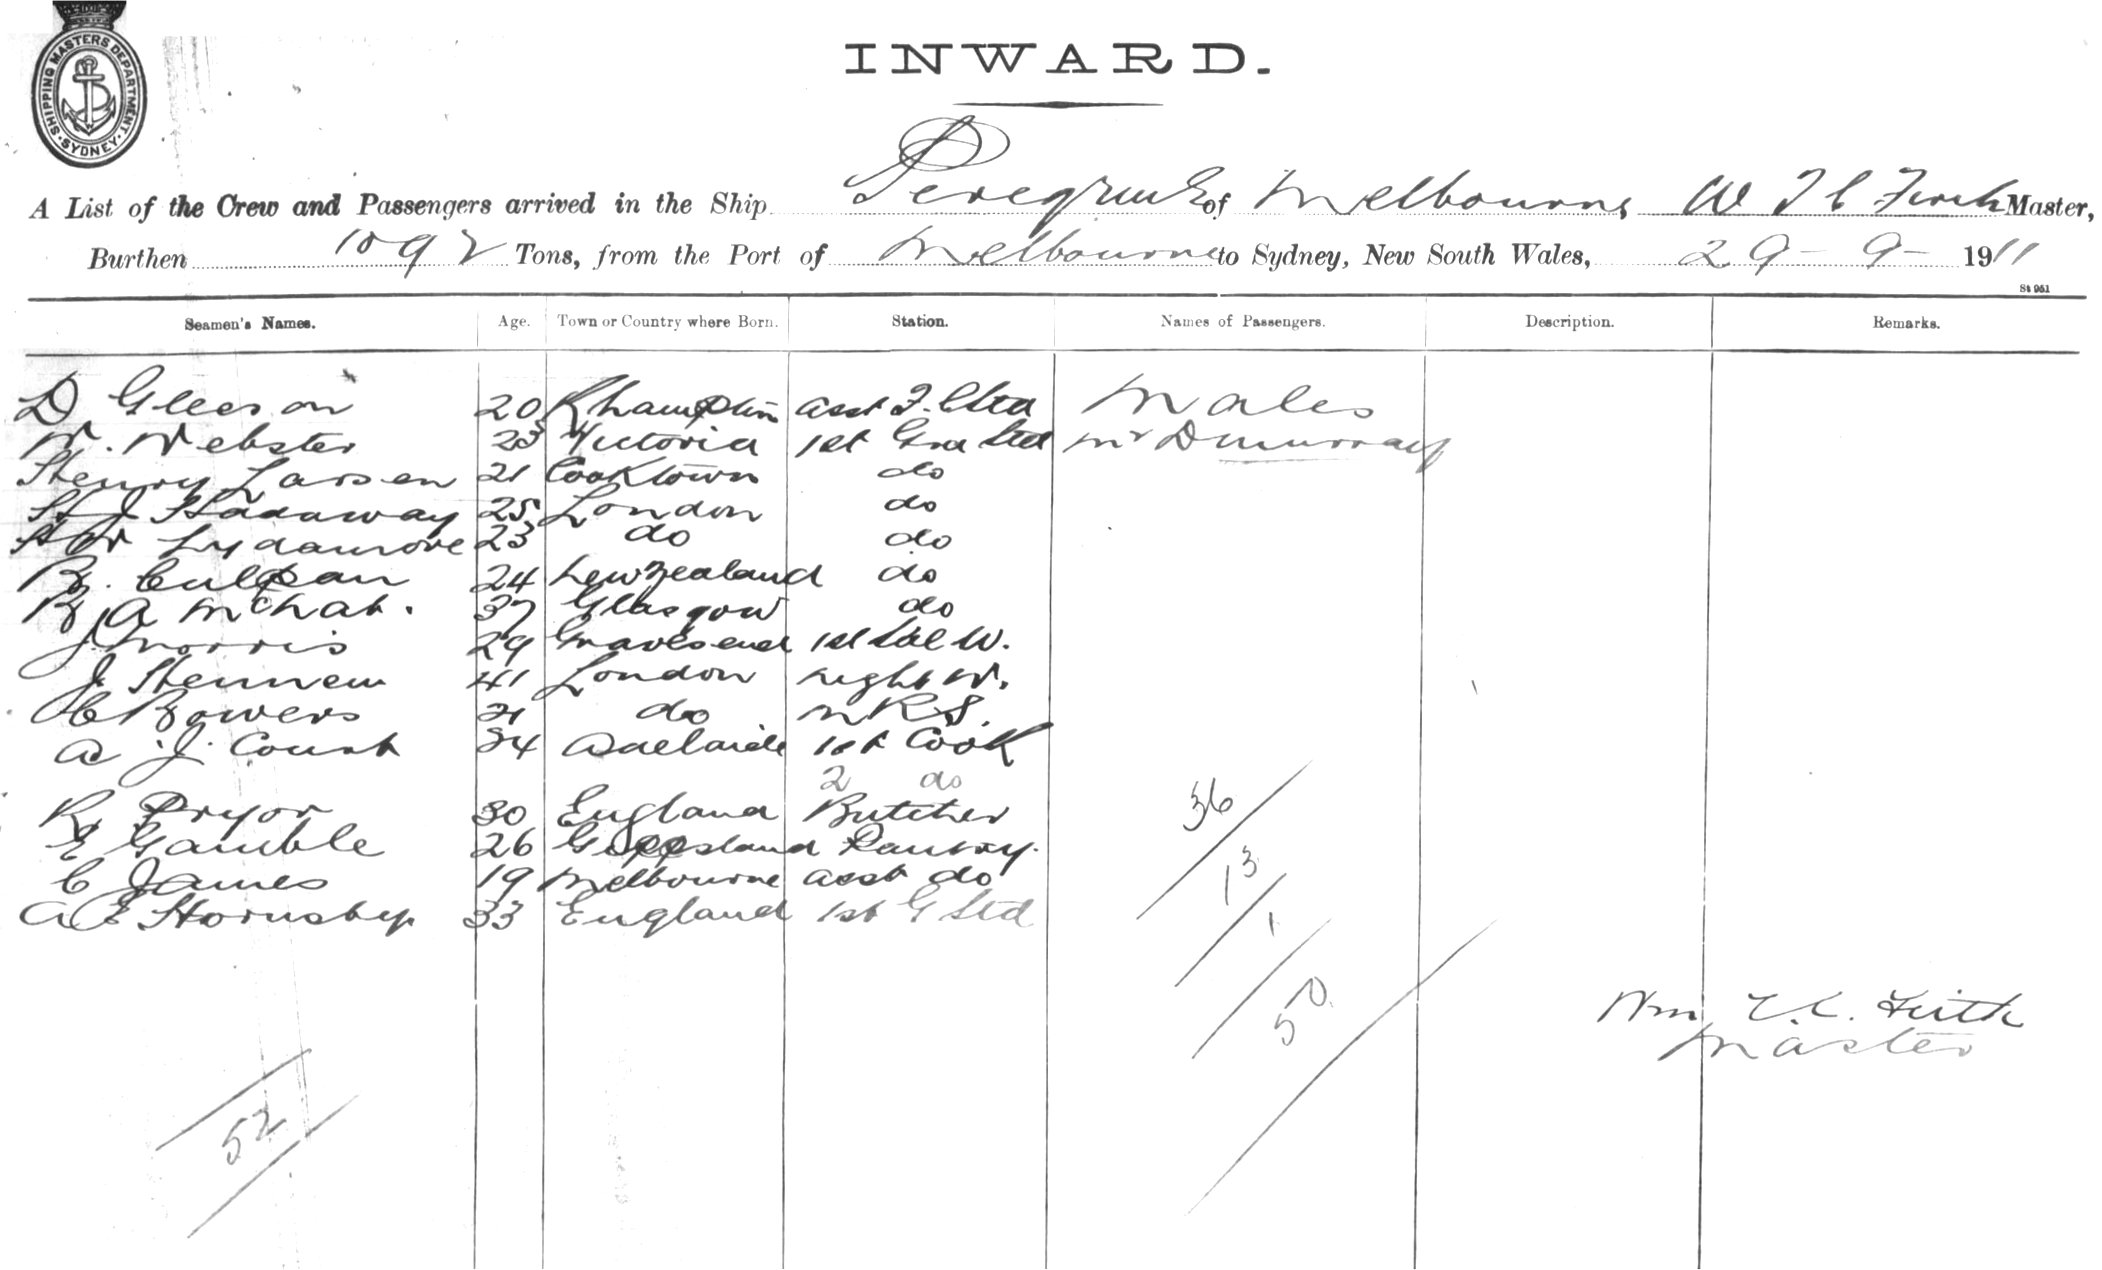 SHIPPING MASTERS DEPARTMENT. SYDNEY
INWARD.
A List of the Crew and Passengers arrived in the Ship Peregrine of Melbourne, W T C Firth Master,
Burthen 1092 Tons, from the Port of Melbourne to Sydney, New South Wales, 29-9-1911
St 951
Seamen's Names. Age. Town or Country where Born. Station. Names of Passengers. Description. Remarks.
D Gleeson 20 Rhampton asst F. Std Males
W. Webster 23 Victoria 1st Gra Std Mr D Murray
Henry Larsen 21 Cooktown do
H J Hadaway 25 London do
H W Lydamore 23 do do
R. Culpan 24 New Zealand do
R A McNab. 37 Glasgow do
J Morris 29 Gravesend 1st Sal W.
J. Hennem 41 London night W.
H C Bowers 21 do M R S.
A. J. Court 34 Adelaide 1st Cook
2 do
R Pryor 30 England Butcher
E Gamble 26 Gippsland Pantry.
C James 19 Melbourne asst do
A E Hornsby 33 England 1st G Std
36
13
1
50
Wm T. C. Firth
Master
52